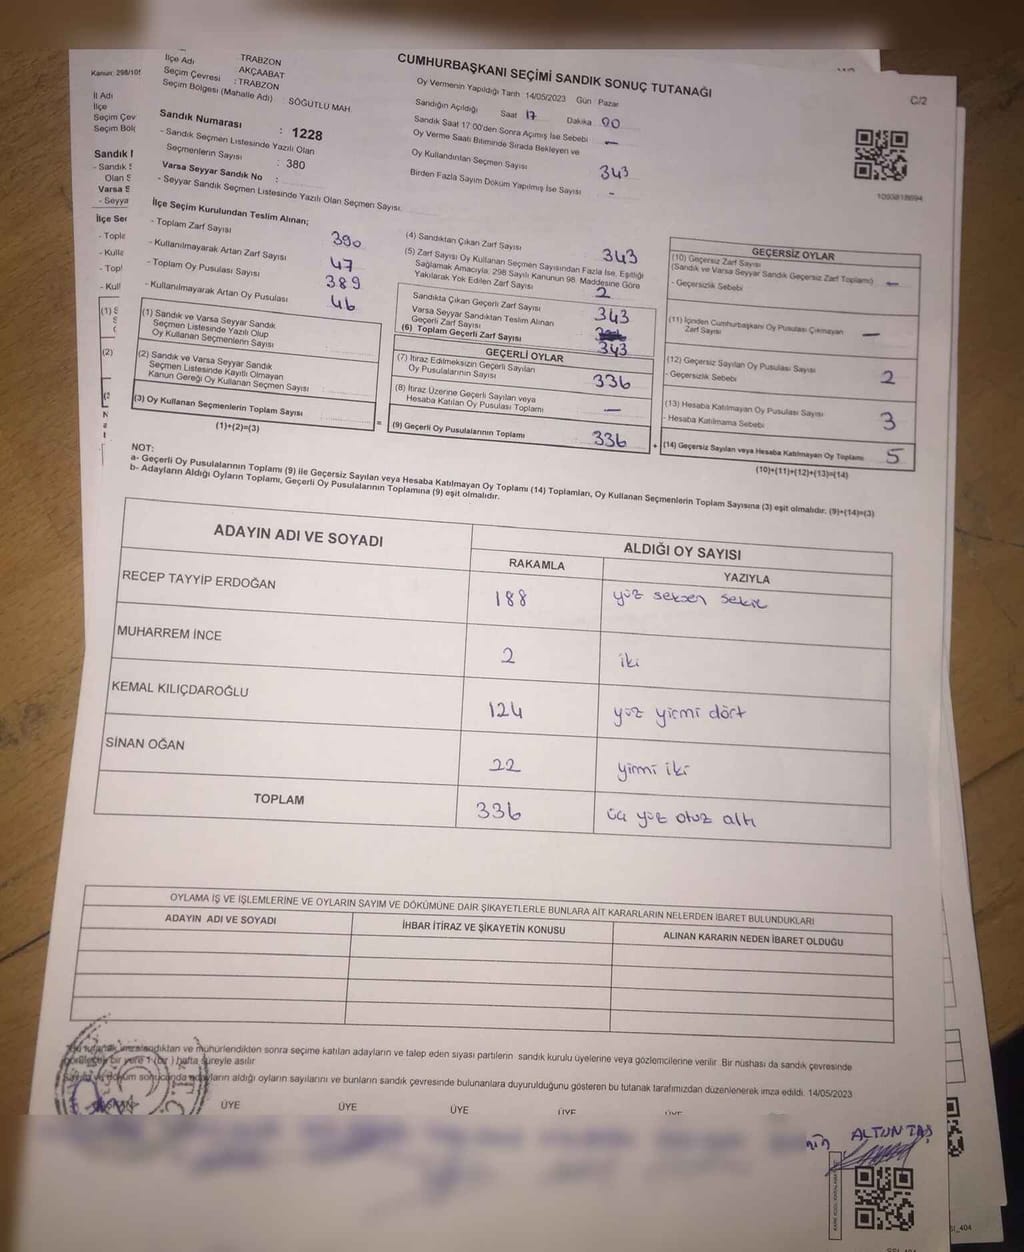 CUMHURBAŞKANI SEÇİMİ SANDIK SONUÇ TUTANAĞI
C/2
Kanun: 298/105
İl Adı
İlçe
Seçim Çev
Seçim Böl
İlçe Adı : TRABZON
Seçim Çevresi : AKÇAABAT
Seçim Bölgesi (Mahalle Adı) : TRABZON
: SÖĞÜTLÜ MAH.
Sandık Numarası : 1228
- Sandık Seçmen Listesinde Yazılı Olan
Seçmenlerin Sayısı : 380
Varsa Seyyar Sandık No :
- Seyyar Sandık Seçmen Listesinde Yazılı Olan Seçmen Sayısı:
Oy Vermenin Yapıldığı Tarih 14/05/2023 Gün Pazar
Sandığın Açıldığı Saat 17 Dakika 00
Sandık Saat 17:00'den Sonra Açımış İse Sebebi —
Oy Verme Saati Bitiminde Sırada Bekleyen ve
Oy Kullandırılan Seçmen Sayısı 343
Birden Fazla Sayım Döküm Yapılmış İse Sayısı -
İlçe Seçim Kurulundan Teslim Alınan;
- Toplam Zarf Sayısı 390
- Kullanılmayarak Artan Zarf Sayısı 47
- Toplam Oy Pusulası Sayısı 389
- Kullanılmayarak Artan Oy Pusulası 46
(1) Sandık ve Varsa Seyyar Sandık
Seçmen Listesinde Yazılı Olup
Oy Kullanan Seçmenlerin Sayısı
(2) Sandık ve Varsa Seyyar Sandık
Seçmen Listesinde Kayıtlı Olmayan
Kanun Gereği Oy Kullanan Seçmen Sayısı
(3) Oy Kullanan Seçmenlerin Toplam Sayısı
(1)+(2)=(3)
(4) Sandıktan Çıkan Zarf Sayısı 343
(5) Zarf Sayısı Oy Kullanan Seçmen Sayısından Fazla İse, Eşitliği
Sağlamak Amacıyla; 298 Sayılı Kanunun 98. Maddesine Göre
Yakılarak Yok Edilen Zarf Sayısı 2
Sandıkta Çıkan Geçerli Zarf Sayısı 343
Varsa Seyyar Sandıktan Teslim Alınan
Geçerli Zarf Sayısı
(6) Toplam Geçerli Zarf Sayısı 343
GEÇERLİ OYLAR
(7) İtiraz Edilmeksizin Geçerli Sayılan
Oy Pusulalarının Sayısı 336
(8) İtiraz Üzerine Geçerli Sayılan veya
Hesaba Katılan Oy Pusulası Toplamı —
(9) Geçerli Oy Pusulalarının Toplamı 336
GEÇERSİZ OYLAR
(10) Geçersiz Zarf Sayısı
(Sandık ve Varsa Seyyar Sandık Geçersiz Zarf Toplamı) —
- Geçersizlik Sebebi
(11) İçinden Cumhurbaşkanı Oy Pusulası Çıkmayan
Zarf Sayısı —
(12) Geçersiz Sayılan Oy Pusulası Sayısı 2
- Geçersizlik Sebebi
(13) Hesaba Katılmayan Oy Pusulası Sayısı 3
- Hesaba Katılmama Sebebi
(14) Geçersiz Sayılan veya Hesaba Katılmayan Oy Toplamı 5
(10)+(11)+(12)+(13)=(14)
NOT:
a- Geçerli Oy Pusulalarının Toplamı (9) ile Geçersiz Sayılan veya Hesaba Katılmayan Oy Toplamı (14) Toplamları, Oy Kullanan Seçmenlerin Toplam Sayısına (3) eşit olmalıdır. (9)+(14)=(3)
b- Adayların Aldığı Oyların Toplamı, Geçerli Oy Pusulalarının Toplamına (9) eşit olmalıdır.
ADAYIN ADI VE SOYADI ALDIĞI OY SAYISI
RAKAMLA YAZIYLA
RECEP TAYYİP ERDOĞAN 188 yüz seksen sekiz
MUHARREM İNCE 2 iki
KEMAL KILIÇDAROĞLU 124 yüz yirmi dört
SİNAN OĞAN 22 yirmi iki
TOPLAM 336 üç yüz otuz altı
OYLAMA İŞ VE İŞLEMLERİNE VE OYLARIN SAYIM VE DÖKÜMÜNE DAİR ŞİKAYETLERLE BUNLARA AİT KARARLARIN NELERDEN İBARET BULUNDUKLARI
ADAYIN ADI VE SOYADI İHBAR İTİRAZ VE ŞİKAYETİN KONUSU ALINAN KARARIN NEDEN İBARET OLDUĞU
tutanak imzalandıktan ve mühürlendikten sonra seçime katılan adayların ve talep eden siyasi partilerin sandık kurulu üyelerine veya gözlemcilerine verilir. Bir nüshası da sandık çevresinde
görülecek bir yere 1 (bir) hafta süreyle asılır.
döküm sonucunda adayların aldığı oyların sayılarını ve bunların sandık çevresinde bulunanlara duyurulduğunu gösteren bu tutanak tarafımızdan düzenlenerek imza edildi. 14/05/2023
BAŞKAN ÜYE ÜYE ÜYE ÜYE ÜYE
ALTUNTAŞ